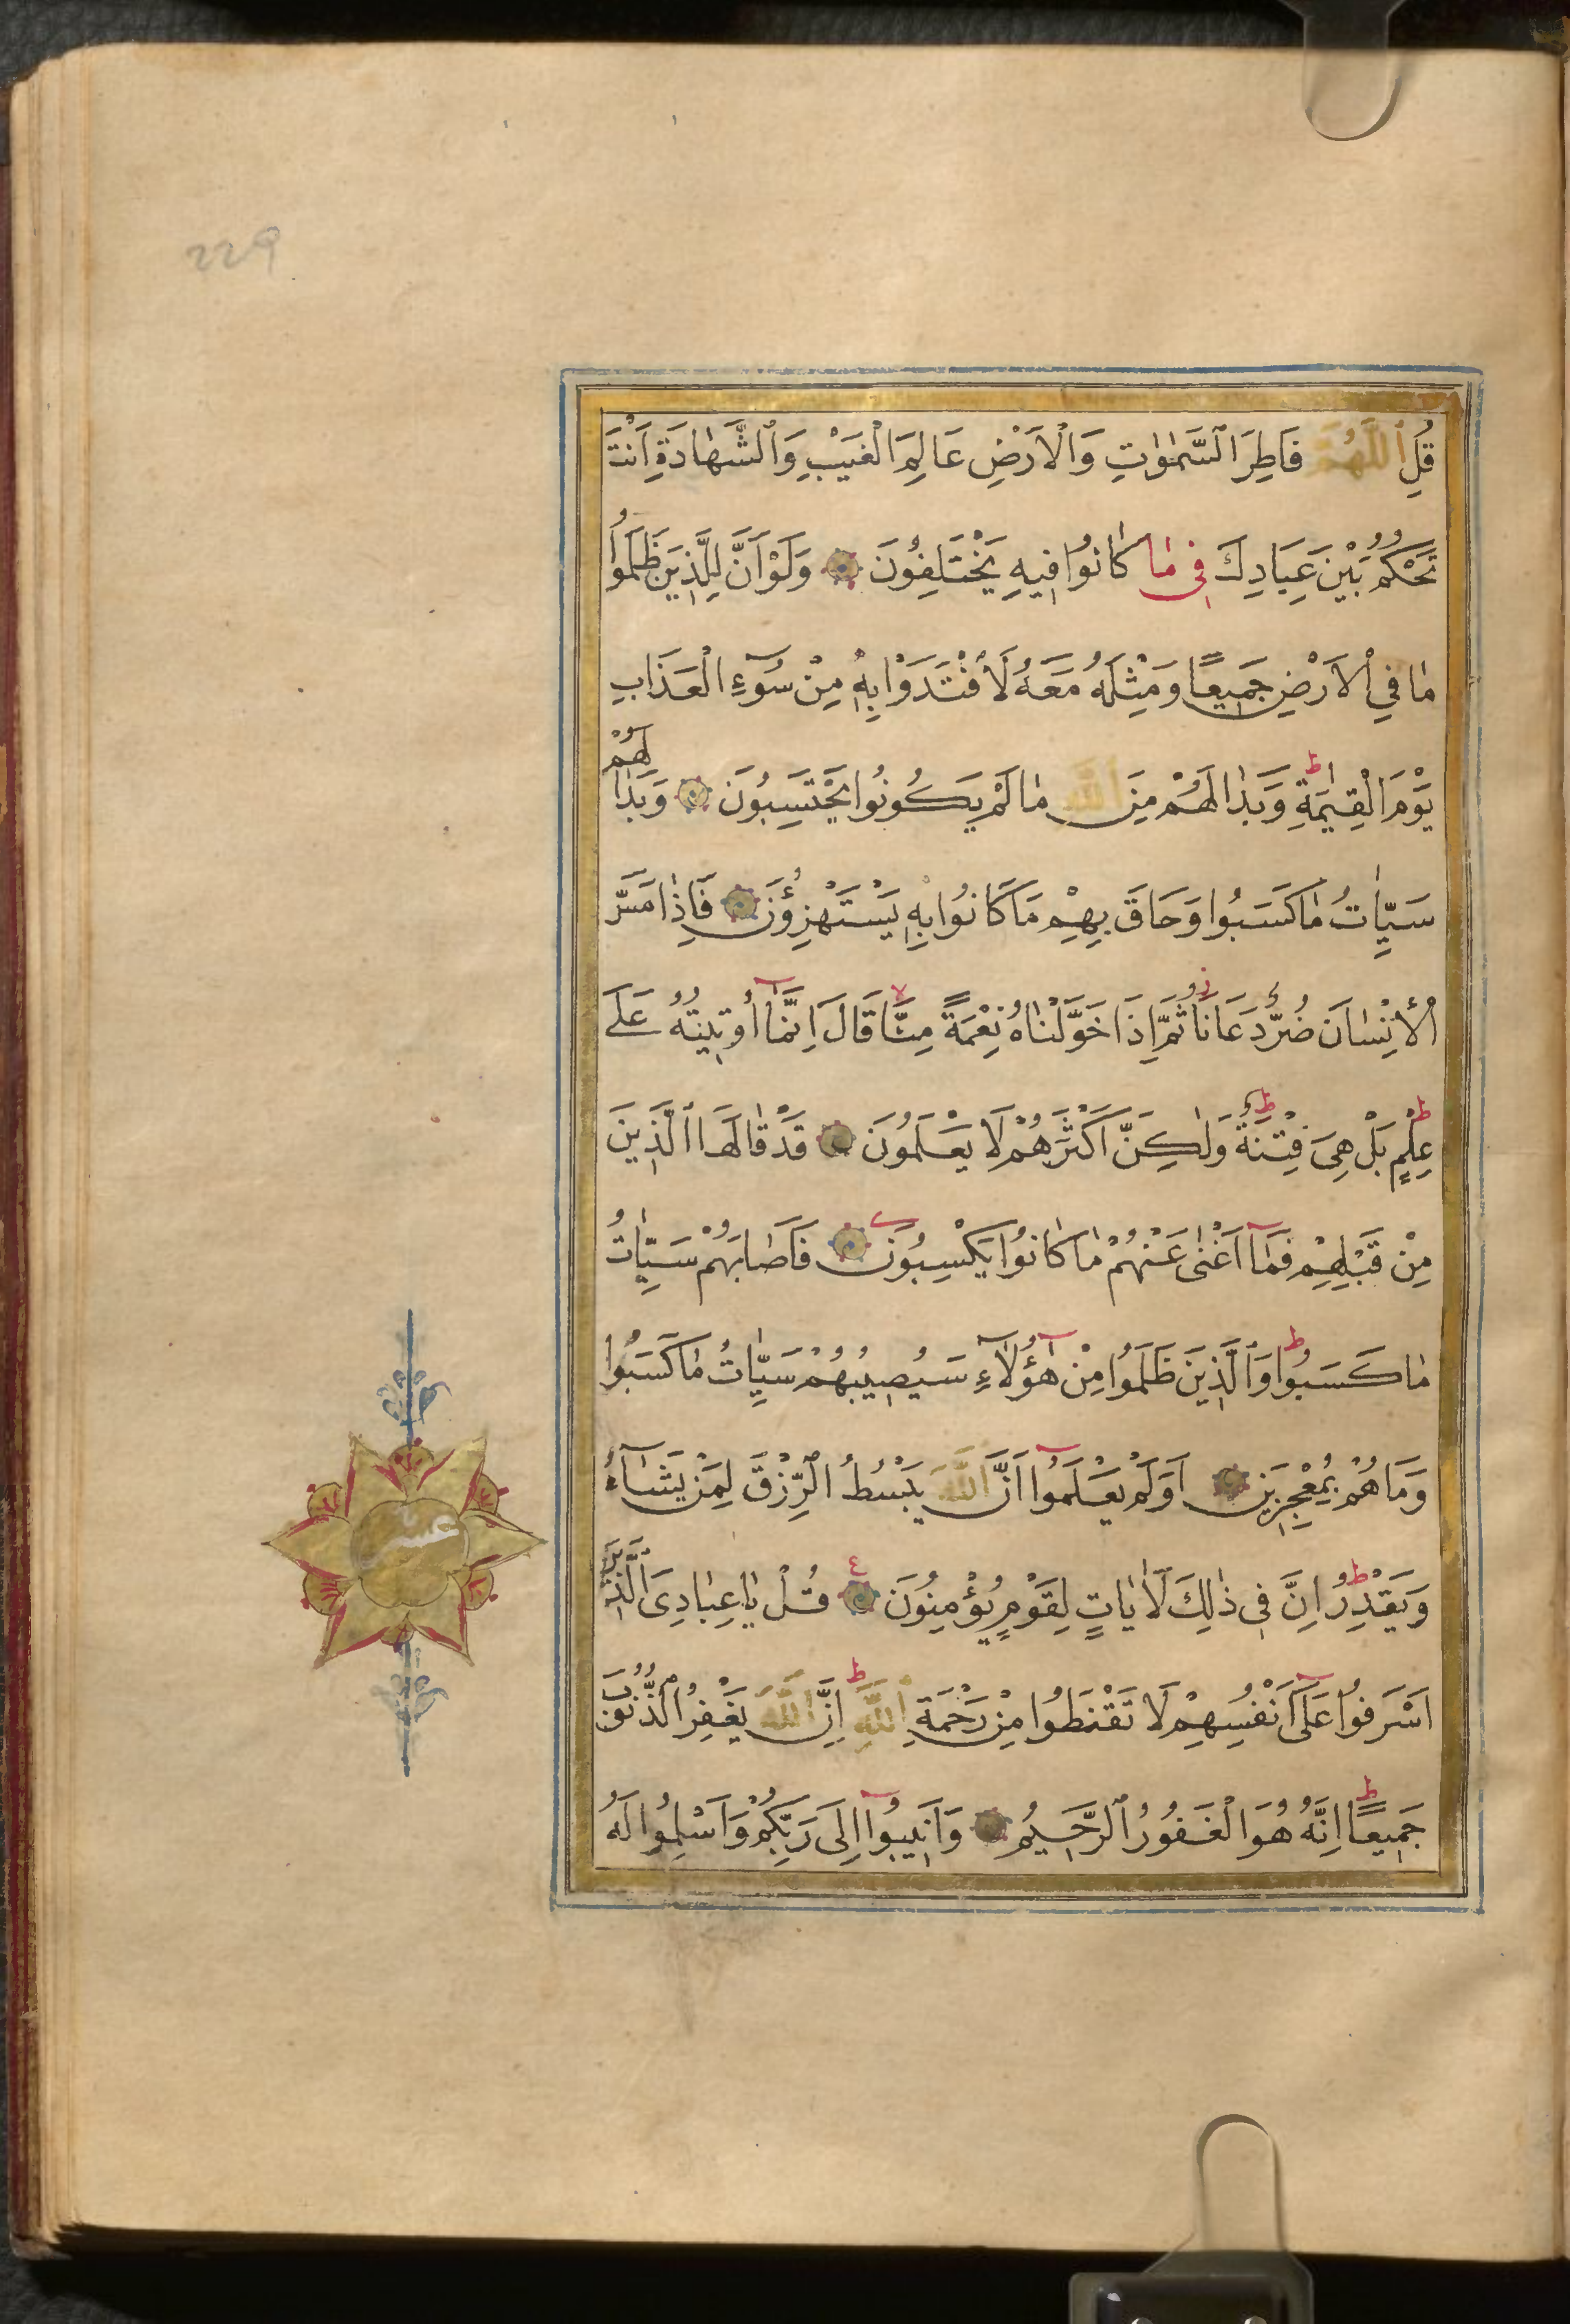 229
قُلِ ٱللَّهُمَّ فَاطِرَ ٱلسَّمٰوٰاتِ وَٱلْاَرْضِ عَالِمَ الْغَيْبِ وَٱلشَّهٰادَةِ اَنْتَ
تَحْكُمُ بَيْنَ عِبَادِكَ فِى مٰا كٰانُوا فِيهِ يَخْتَلِفُونَ وَلَوْ اَنَّ لِلَّذِينَ ظَلَمُوا
مٰا فِي الْاَرْضِ جَمِيعًا وَمِثْلَهُ مَعَهُ لَافْتَدَوْا بِهِ مِنْ سُوٓءِ الْعَذَابِ
يَوْمَ الْقِيٰمَةِ ط وَبَدٰا لَهُمْ مِنَ ٱللَّهِ مٰا لَمْ يَكُونُوا يَحْتَسِبُونَ وَبَدٰا لَهُمْ
سَيِّاٰتُ مٰا كَسَبُوا وَحَاقَ بِهِمْ مَا كَانُوا بِهِ يَسْتَهْزِؤُنَ فَاِذٰا مَسَّ
الْاِنْسٰانَ ضُرٌّ دَعَانَا ز ثُمَّ اِذَا خَوَّلْنٰاهُ نِعْمَةً مِنَّا لا قَالَ اِنَّمَآ اُوتِيتُهُ عَلٰى
عِلْمٍ ط بَلْ هِىَ فِتْنَةٌ ط وَلٰكِنَّ اَكْثَرَهُمْ لَا يَعْلَمُونَ قَدْ قٰالَهَا الَّذِينَ
مِنْ قَبْلِهِمْ فَمَآ اَغْنٰى عَنْهُمْ مٰا كٰانُوا يَكْسِبُونَ فَاَصٰابَهُمْ سَيِّاٰتُ
مٰا كَسَبُوا ط وَالَّذِينَ ظَلَمُوا مِنْ هٰٓؤُلَآءِ سَيُصِيبُهُمْ سَيِّاٰتُ مٰا كَسَبُوا
وَمَا هُمْ بِمُعْجِزِينَ اَوَلَمْ يَعْلَمُوٓا اَنَّ ٱللَّهَ يَبْسُطُ الرِّزْقَ لِمَنْ يَشَآءُ
وَيَقْدِرُ ط اِنَّ فِى ذٰلِكَ لَاٰيَاتٍ لِقَوْمٍ يُؤْمِنُونَ ع قُلْ يٰا عِبٰادِىَ ٱلَّذِينَ
اَسْرَفُوا عَلَىٓ اَنْفُسِهِمْ لَا تَقْنَطُوا مِنْ رَحْمَةِ ٱللَّهِ ط اِنَّ ٱللَّهَ يَغْفِرُ ٱلذُّنُوبَ
جَمِيعًا ط اِنَّهُ هُوَ الْغَفُورُ ٱلرَّحِيمُ وَاَنِيبُوٓا اِلَى رَبِّكُمْ وَاَسْلِمُوا لَهُ
عشر